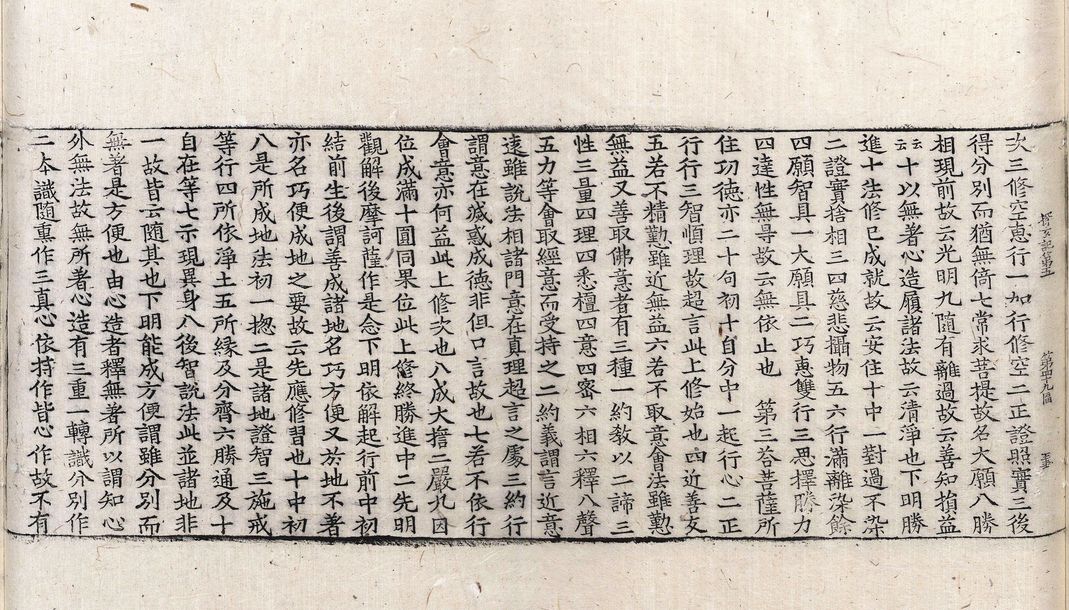 探玄記第五　第四九張
次三修空恵行一如行修空二正證照實三後
得分別而猶無倚七常求菩提故名大願八勝
相現前故云光明九随有離過故云善知損益
云云十以無著心造履諸法故云清淨也下明勝
進十法修已成就故云安住十中一對過不染
二證實捨相三四慈悲攝物五六行滿離染餘
四願智具一大願具二巧恵雙行三思擇勝力
四達性無㝵故云無依止也　第三荅菩薩所
住功徳亦二十句初十自分中一起行心二正
行行三智順理故超言此上修始也四近善友
五若不精勤雖近無益六若不取意會法雖勤
無益又善取佛意者有三種一約教以二諦三
性三量四理四悉檀四意四密六相六釋八聲
五力等會取經意而受持之二約義謂言近意
遠雖說法相諸門意在真理超言之處三約行
謂意在滅惑成徳非但口言故也七若不依行
會意亦何益此上修次也八成大擔二嚴九因
位成滿十圓同果位此上修終勝進中二先明
觀解後摩訶薩作是念下明依解起行前中初
結前生後謂善成諸地名巧方便又於地不著
亦名巧便成地之要故云先應修習也十中初
八是所成地法初一揔二是諸地證智三施戒
等行四所依淨土五所緣及分齊六勝通及十
自在等七示現異身八後智說法此並諸地非
一故皆云随其也下明能成方便謂雖分別而
無著是方便也由心造者釋無著所以謂知心
外無法故無所著心造有三重一轉識分別作
二本識随熏作三真心依持作皆心作故不有